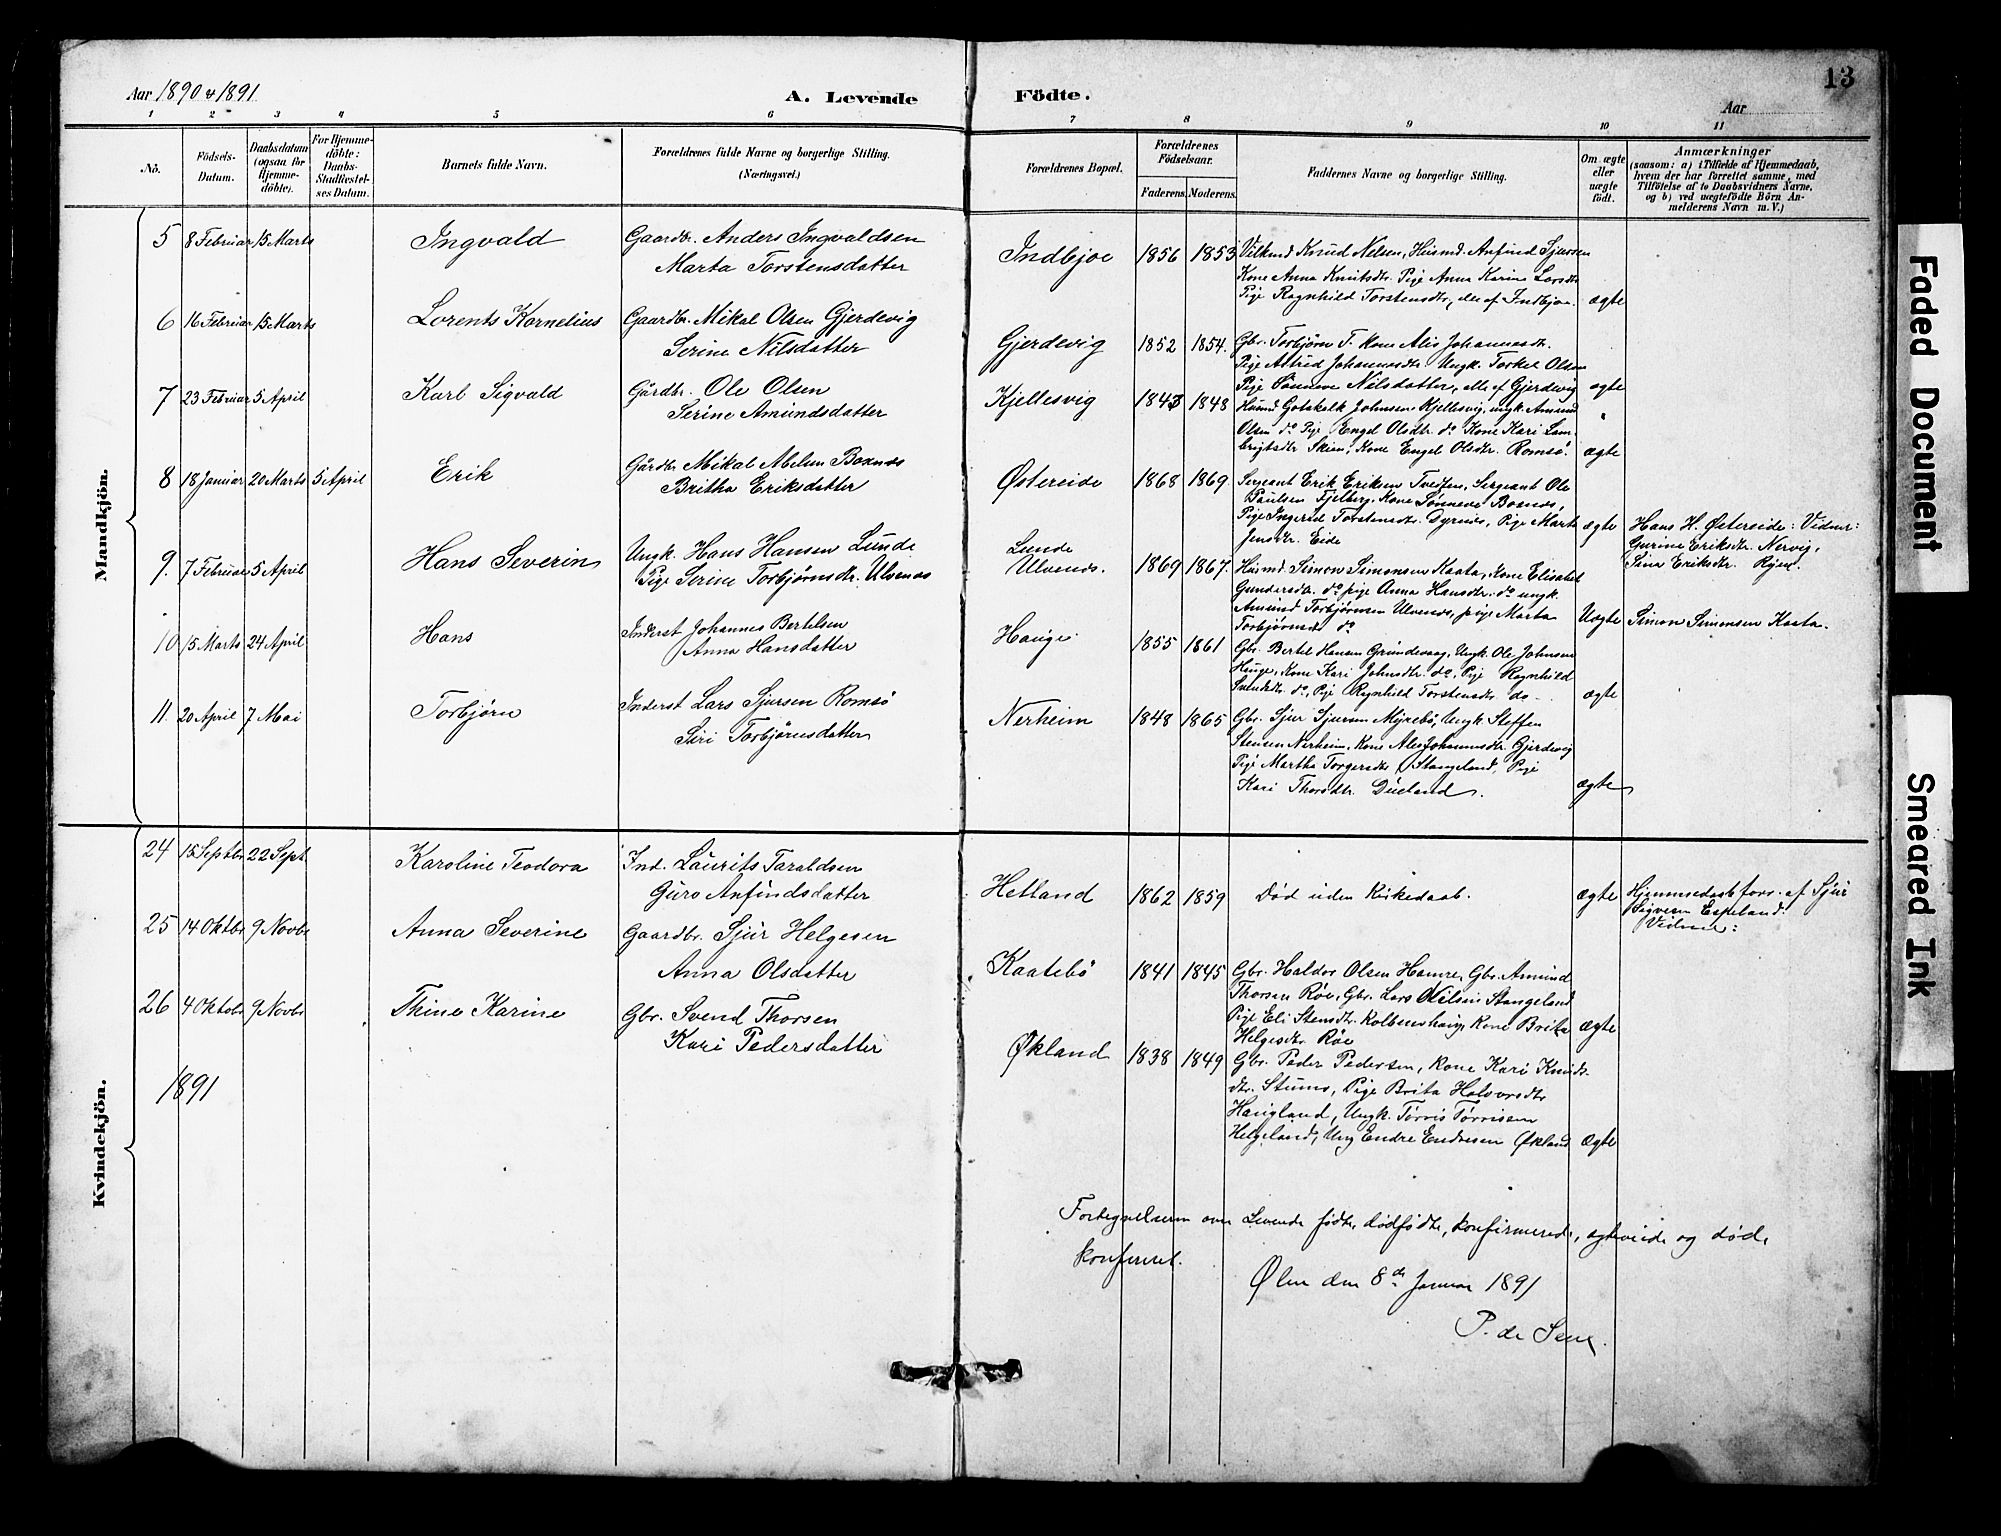 Aar 1890 & 1891
A. Levende
Födte.
13
Aar
1 2 3 4 5 6 7 8 9 10 11
No.
Födsels-
Datum.
Daabsdatum
(ogsaa for
Hjemme-
döbte).
For Hjemme-
döbte:
Daabs-
Stadfæstel-
ses Datum.
Barnets fulde Navn.
Forældrenes fulde Navne og borgerlige Stilling.
(Næringsvei.)
Forældrenes Bopæl.
Forældrenes
Födselsaar.
Faderens. Moderens.
Faddernes Navne og borgerlige Stilling.
Om ægte
eller
uægte
födt.
Anmærkninger
(saasom: a) i Tilfælde af Hjemmedaab,
hvem der har forrettet samme, med
Tilföielse af to Daabsvidners Navne,
og b) ved uægtefödte Börn An-
melderens Navn m. V.)
Mandkjön.
5 8 Februar 15 Marts Ingvald Gaardbr. Anders Ingvaldsen
Marta Torstensdatter
Indbjoe 1856 1853 Knud Nelsen, Husmd. Anfind Sjursen
Kone Anna Knutsdtr. Pige Anna Karine Larsdtr
Pige Ragnhild Torstensdtr, alle af Indbjoe. ægte
6 16 Februar 15 Marts Lorents Kornelius Gaardbr. Mikal Olsen Gjerdevig
Serine Nilsdatter
Gjerdevig 1852 1854. Gbr. Torbjørn T. Kone Alis Johannesdt.
Pige Astrid Johannesdtr. Ungk. Torkel Olsen
Pige Sønneve Nilsdatter, alle af Gjerdevig ægte
7 23 Februar 5 April Karl Sigvald Gårdbr. Ole Olsen
Serine Amundsdatter
Kjellesvig 1843 1848 Husmd Gotskalk Johnsen Kjellesvig, ungk. Amund
Olsen do Pige Engel Olsdtr. do Kone Kari Lam-
brigtsdtr Skeien, Kone Engel Olsdtr. Romsø. ægte
8 18 Januar 20 Marts 5 April Erik Gårdbr Mikal Boxnæs
Britha Eriksdatter
Østereide 1868 1869 Sergeant Erik Eriksen, Sergeant Ole
Paulsen Fjelberg, Kone Sønneve
Pige Ingerid Torstensdtr. Dyrnes, Pige Marta
Jensdtr. Eide ægte Hans H. Østerside: Vidner:
Gurine Eriksdtr. Nervig,
Sina Eriksdtr.
9. 7 Februar 5 April Hans Severin Ungk. Hans Hansen Lunde
Pige Serine Torbjørnsdtr. Ulvenæs
Lunde
Ulvenæs. 1869 1867. Husmd. Simon Simonsen Kaata, Kone Elisabet
Gundersdtr. do pige Anna Hansdtr. do ungk.
Amund Torbjørnsen Ulvenæs, pige Marta
Torbjørnsdt do Uægte Simon Simonsen Kaata.
10 15 Marts 24 April Hans Inderst Johannes Bertelsen
Anna Hansdatter
Hauge 1855 1861 Gbr. Bertel Hansen Grindevaag, Ungk. Ole Johnsen
Hauge, Kone Kari Johnsdtr. do, Pige Ragnhild
Svendsdtr. do, Pige Ragnhild Torstensdtr do ægte
11. 20 April 7 Mai Torbjørn Inderst Lars Sjursen Romsø
Siri Torbjørnsdatter
Nerheim 1848 1865 Gbr. Sjur Sjursen Myrebø, Ungk. Steffen
Stensen Nerheim, Kone Alis Johannesdtr. Gjerdevig
Pige Martha Torgersdtr Stangeland, Pige
Kari Thorsdtr. Dueland. ægte
Kvindekjön.
24 15 Septbr 22 Sept Karoline Teodora Ind. Laurits Taraldsen
Guro Anfindsdatter
Hetland 1862 1859 Død uden Kirkedaab. ægte Hjemmedaab forr. af Sjur
Sigvesen Espeland.
Vidner:
25 14 Oktbr 9 Novbr Anna Severine Gaardbr. Sjur Helgesen
Anna Olsdatter
Kaatebø 1841 1845 Gbr. Haldor Olsen Hamre, Gbr. Amund
Thorsen Røe, Gbr. Lars Nilsen Stangeland
Pige Eli Stensdtr. Kolbenshaug, Kone Brita
Helgesdtr Røe ægte
26 4 Oktobr 9 Novbr Thine Karine Gbr. Svend Thorsen
Kari Pedersdatter
Økland 1838 1849 Gbr. Peder Pedersen, Kone Kari Knuds-
dtr. Stumo, Pige Brita Halvorsdtr
Haugland, Ungk. Tørris Tørrisen
Helgeland, Ung Endre Endresen Økland ægte
1891
Fortegnelsen over Levende fødte, dødfødte, konfirmerede, ægteviede og døde
konfereret.
Ølen den 8de Januar 1891
P. de Seue.
Faded Document
Smeared Ink